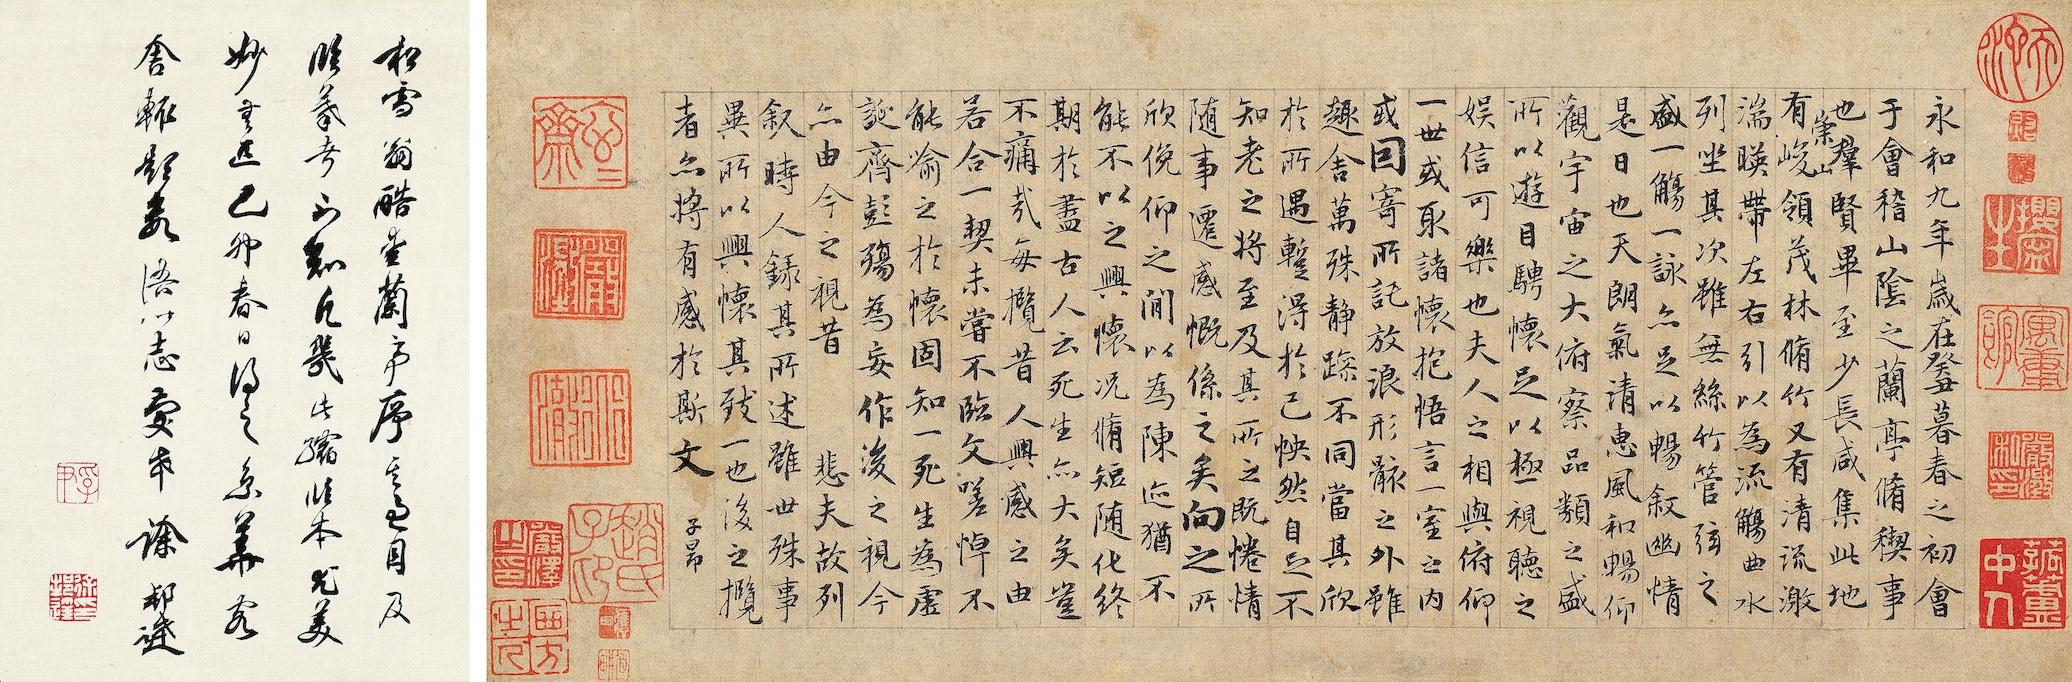 永和九年歲在癸丑暮春之初會
于會稽山陰之蘭亭脩禊事
也羣賢畢至少長咸集此地
有崇山峻領茂林脩竹又有清流激
湍暎帶左右引以為流觴曲水
列坐其次雖無絲竹管弦之
盛一觴一詠亦足以暢叙幽情
是日也天朗氣清惠風和暢仰
觀宇宙之大俯察品類之盛
所以遊目騁懷足以極視聽之
娛信可樂也夫人之相與俯仰
一世或取諸懷抱悟言一室之內
或因寄所託放浪形骸之外雖
趣舍萬殊静躁不同當其欣
於所遇蹔得於己怏然自足不
知老之將至及其所之既惓情
随事遷感慨係之矣向之所
欣俛仰之閒以為陳迹猶不
能不以之興懷况脩短随化終
期於盡古人云死生亦大矣豈
不痛哉每攬昔人興感之由
若合一契未嘗不臨文嗟悼不
能喻之於懷固知一死生為虛
誕齊彭殤為妄作後之視今
亦由今之視昔 悲夫故列
叙時人錄其所述雖世殊事
異所以興懷其致一也後之攬
者亦將有感於斯文 子昂
趙氏子昂
松雪翁酷愛蘭亭序其過目及
臨摹者不知凡幾此縮臨本尤美
妙無匹己卯春日得之
舍輒題數語以志愛幸 徐邦達
徐邦達印